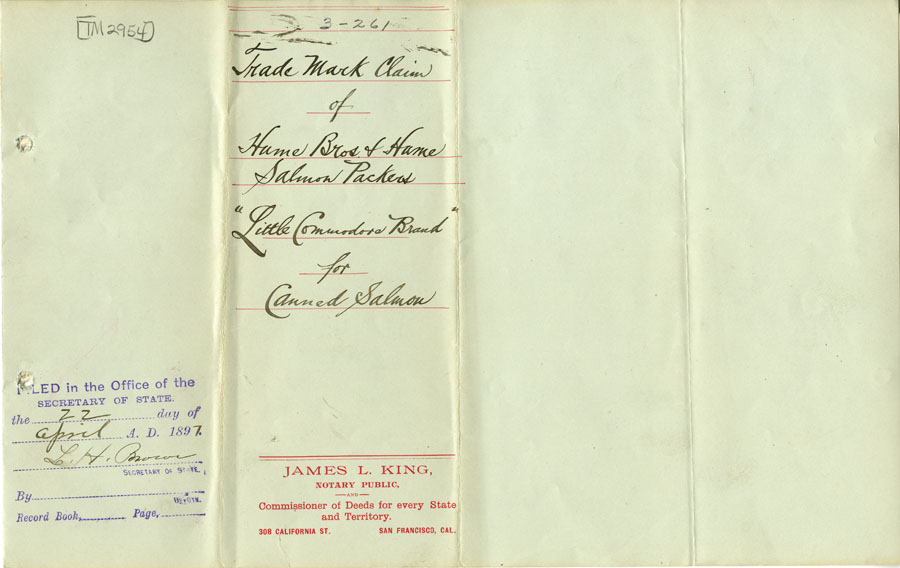 TM2954
3-261
Trade Mark Claim
of
Hume Bros. & Hume
Salmon Packers
"Little Commodore Brand"
for
Canned Salmon
FILED in the Office of the
SECRETARY OF STATE.
the 22 day of
April A. D. 1897.
L. H. Brown
SECRETARY OF STATE.
By
DEPUTY.
Record Book, Page,
JAMES L. KING,
NOTARY PUBLIC,
—AND—
Commissioner of Deeds for every State
and Territory.
308 CALIFORNIA ST. SAN FRANCISCO, CAL.